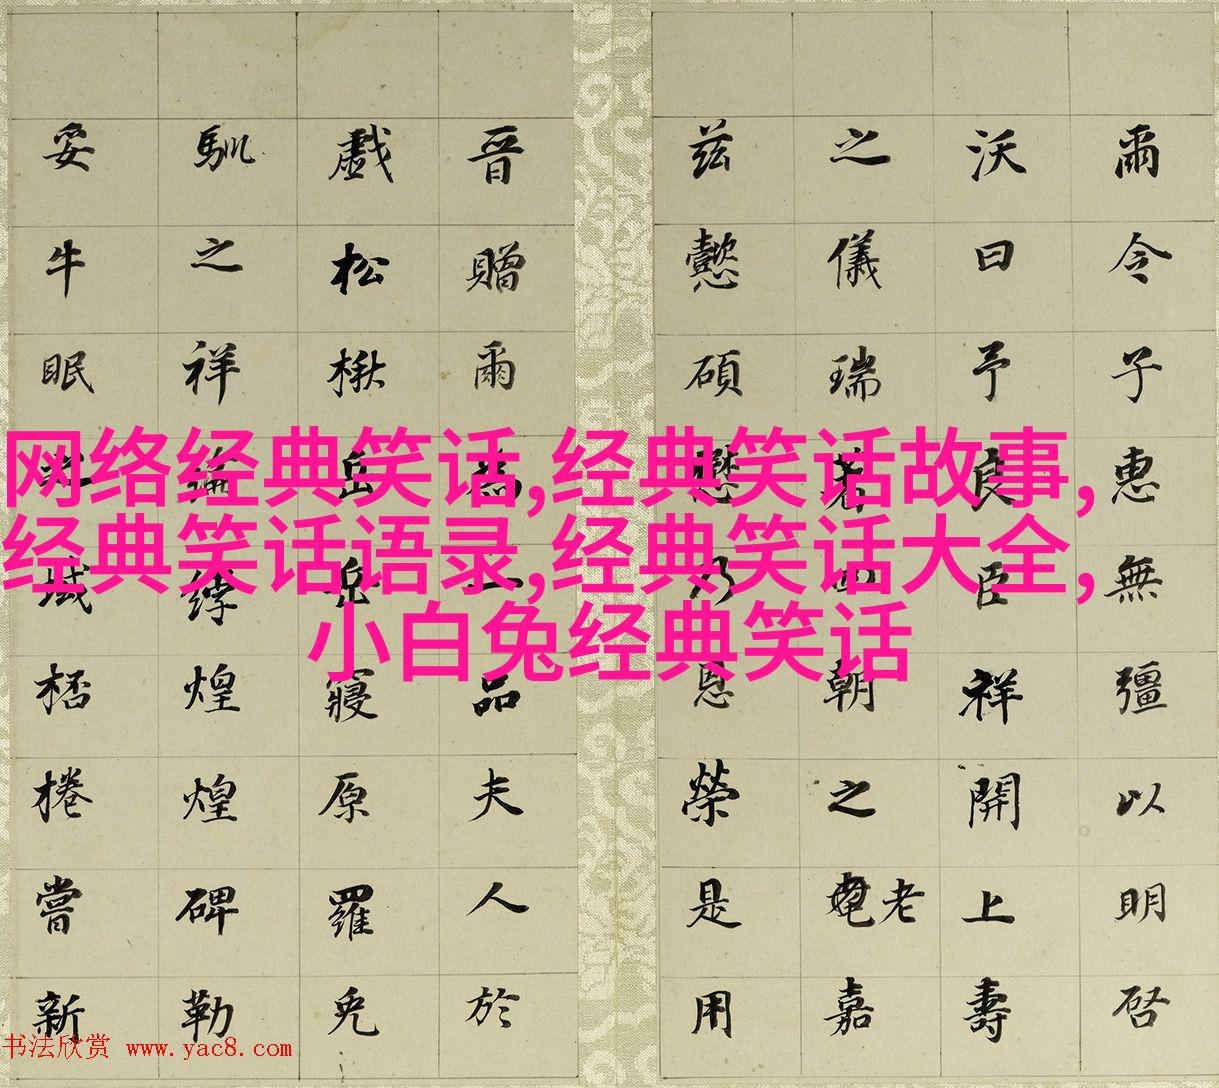 爾令子惠無彊以明啓
沃曰予良臣祥開上壽
之儀瑞著四朝之老嘉
茲懿碩懋乃恩榮是用
晉贈爾為一品夫人於
戲松楸岳兆寢原羅兔
馴之祥綸綍煌煌碑勒
妥牛眠之域桮棬嘗新
网络经典笑话,经典笑话故事,
经典笑话语录,经典笑话大全,
小白兔经典笑话
书法欣赏 www.yac8.com